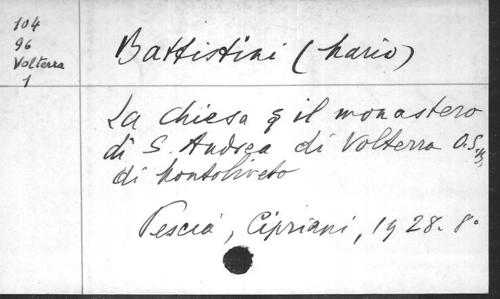 104
96
Volterra
1
Battistini (Mario)
La chiesa e il monastero
di S. Andrea di Volterra O.S.B.
di Montoliveto
Pescia, Cipriani, 1928. 8°